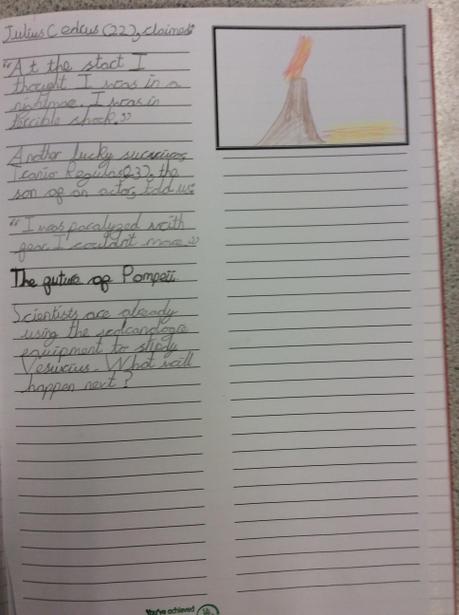 Julius Cedcus (22), claimed
"At the start I
thought I was in a
nightmae. I was in
terrible shock."
Another lucky
Icario Regulas(23), the
son of an actor, told us
"I was paralyzed with
fear I couldnt move."
The future of Pompeii
Scientists are already
using the
equipment to study
Vesuvius. What will
happen next?
You've achieved